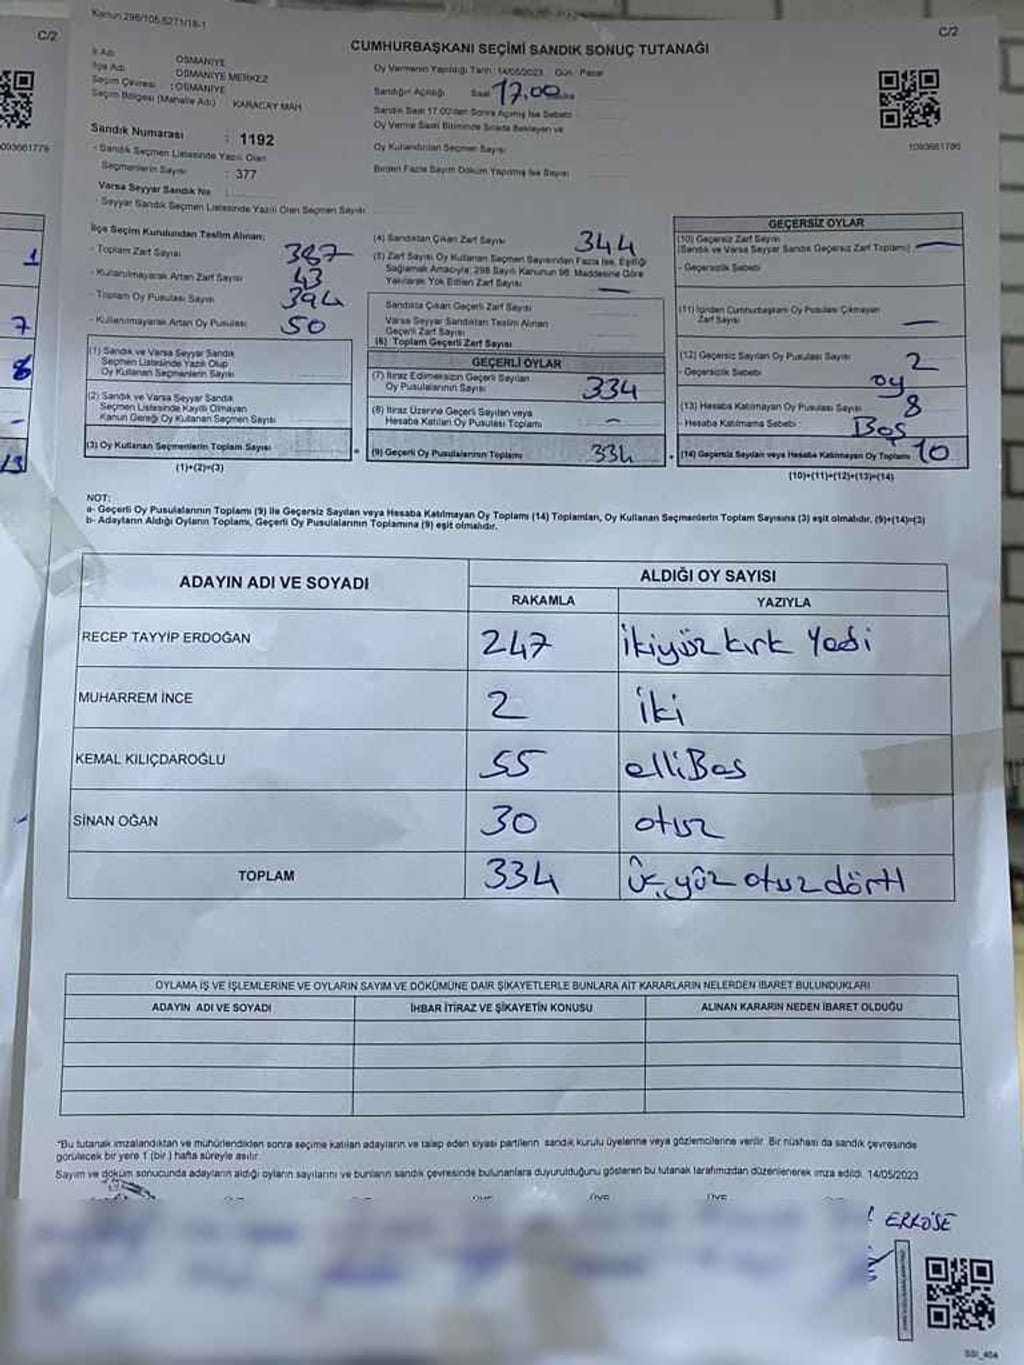 Kanun 298/105,5271/18-1
C/2
C/2
CUMHURBAŞKANI SEÇİMİ SANDIK SONUÇ TUTANAĞI
İl Adı OSMANİYE
İlçe Adı OSMANİYE MERKEZ
Seçim Çevresi : OSMANİYE
Seçim Bölgesi (Mahalle Adı) KARACAY MAH.
Oy Vermenin Yapıldığı Tarih: 14/05/2023 Gün: Pazar
Sandığın Açıldığı Saat 17.00
Sandık Saat 17:00'den Sonra Açılmış İse Sebebi
Oy Verme Saati Bitiminde Sırada Bekleyen ve
Oy Kullandırılan Seçmen Sayısı
Birden Fazla Sayım Döküm Yapılmış İse Sayısı
1093661780
Sandık Numarası : 1192
- Sandık Seçmen Listesinde Yazılı Olan
Seçmenlerin Sayısı : 377
Varsa Seyyar Sandık No :
- Seyyar Sandık Seçmen Listesinde Yazılı Olan Seçmen Sayısı
İlçe Seçim Kurulundan Teslim Alınan:
- Toplam Zarf Sayısı 387
- Kullanılmayarak Artan Zarf Sayısı 43
- Toplam Oy Pusulası Sayısı 394
- Kullanılmayarak Artan Oy Pusulası 50
(1) Sandık ve Varsa Seyyar Sandık
Seçmen Listesinde Yazılı Olup
Oy Kullanan Seçmenlerin Sayısı
(2) Sandık ve Varsa Seyyar Sandık
Seçmen Listesinde Kayıtlı Olmayan
Kanun Gereği Oy Kullanan Seçmen Sayısı
(3) Oy Kullanan Seçmenlerin Toplam Sayısı
(1)+(2)=(3)
(4) Sandıktan Çıkan Zarf Sayısı 344
(5) Zarf Sayısı Oy Kullanan Seçmen Sayısından Fazla İse, Eşitliği
Sağlamak Amacıyla; 298 Sayılı Kanunun 98. Maddesine Göre
Yakılarak Yok Edilen Zarf Sayısı —
Sandıkta Çıkan Geçerli Zarf Sayısı
Varsa Seyyar Sandıktan Teslim Alınan
Geçerli Zarf Sayısı
(6) Toplam Geçerli Zarf Sayısı
GEÇERLİ OYLAR
(7) İtiraz Edilmeksizin Geçerli Sayılan
Oy Pusulalarının Sayısı 334
(8) İtiraz Üzerine Geçerli Sayılan veya
Hesaba Katılan Oy Pusulası Toplamı —
(9) Geçerli Oy Pusulalarının Toplamı 334
GEÇERSİZ OYLAR
(10) Geçersiz Zarf Sayısı
(Sandık ve Varsa Seyyar Sandık Geçersiz Zarf Toplamı) —
- Geçersizlik Sebebi
(11) İçinden Cumhurbaşkanı Oy Pusulası Çıkmayan
Zarf Sayısı —
(12) Geçersiz Sayılan Oy Pusulası Sayısı 2
- Geçersizlik Sebebi oy
(13) Hesaba Katılmayan Oy Pusulası Sayısı 8
- Hesaba Katılmama Sebebi : Boş
(14) Geçersiz Sayılan veya Hesaba Katılmayan Oy Toplamı 10
(10)+(11)+(12)+(13)=(14)
NOT:
a- Geçerli Oy Pusulalarının Toplamı (9) ile Geçersiz Sayılan veya Hesaba Katılmayan Oy Toplamı (14) Toplamları, Oy Kullanan Seçmenlerin Toplam Sayısına (3) eşit olmalıdır. (9)+(14)=(3)
b- Adayların Aldığı Oyların Toplamı, Geçerli Oy Pusulalarının Toplamına (9) eşit olmalıdır.
ADAYIN ADI VE SOYADI
ALDIĞI OY SAYISI
RAKAMLA YAZIYLA
RECEP TAYYİP ERDOĞAN 247 ikiyüz kırk Yedi
MUHARREM İNCE 2 iki
KEMAL KILIÇDAROĞLU 55 elliBeş
SİNAN OĞAN 30 otuz
TOPLAM 334 üç yüz otuz dört
OYLAMA İŞ VE İŞLEMLERİNE VE OYLARIN SAYIM VE DÖKÜMÜNE DAİR ŞİKAYETLERLE BUNLARA AİT KARARLARIN NELERDEN İBARET BULUNDUKLARI
ADAYIN ADI VE SOYADI İHBAR İTİRAZ VE ŞİKAYETİN KONUSU ALINAN KARARIN NEDEN İBARET OLDUĞU
"Bu tutanak imzalandıktan ve mühürlendikten sonra seçime katılan adayların ve talep eden siyasi partilerin sandık kurulu üyelerine veya gözlemcilerine verilir. Bir nüshası da sandık çevresinde
görülecek bir yere 1 (bir) hafta süreyle asılır.
Sayım ve döküm sonucunda adayların aldığı oyların sayılarını ve bunların sandık çevresinde bulunanlara duyurulduğunu gösteren bu tutanak tarafımızdan düzenlenerek imza edildi. 14/05/2023
ERKÖSE
1
7
8
-
13